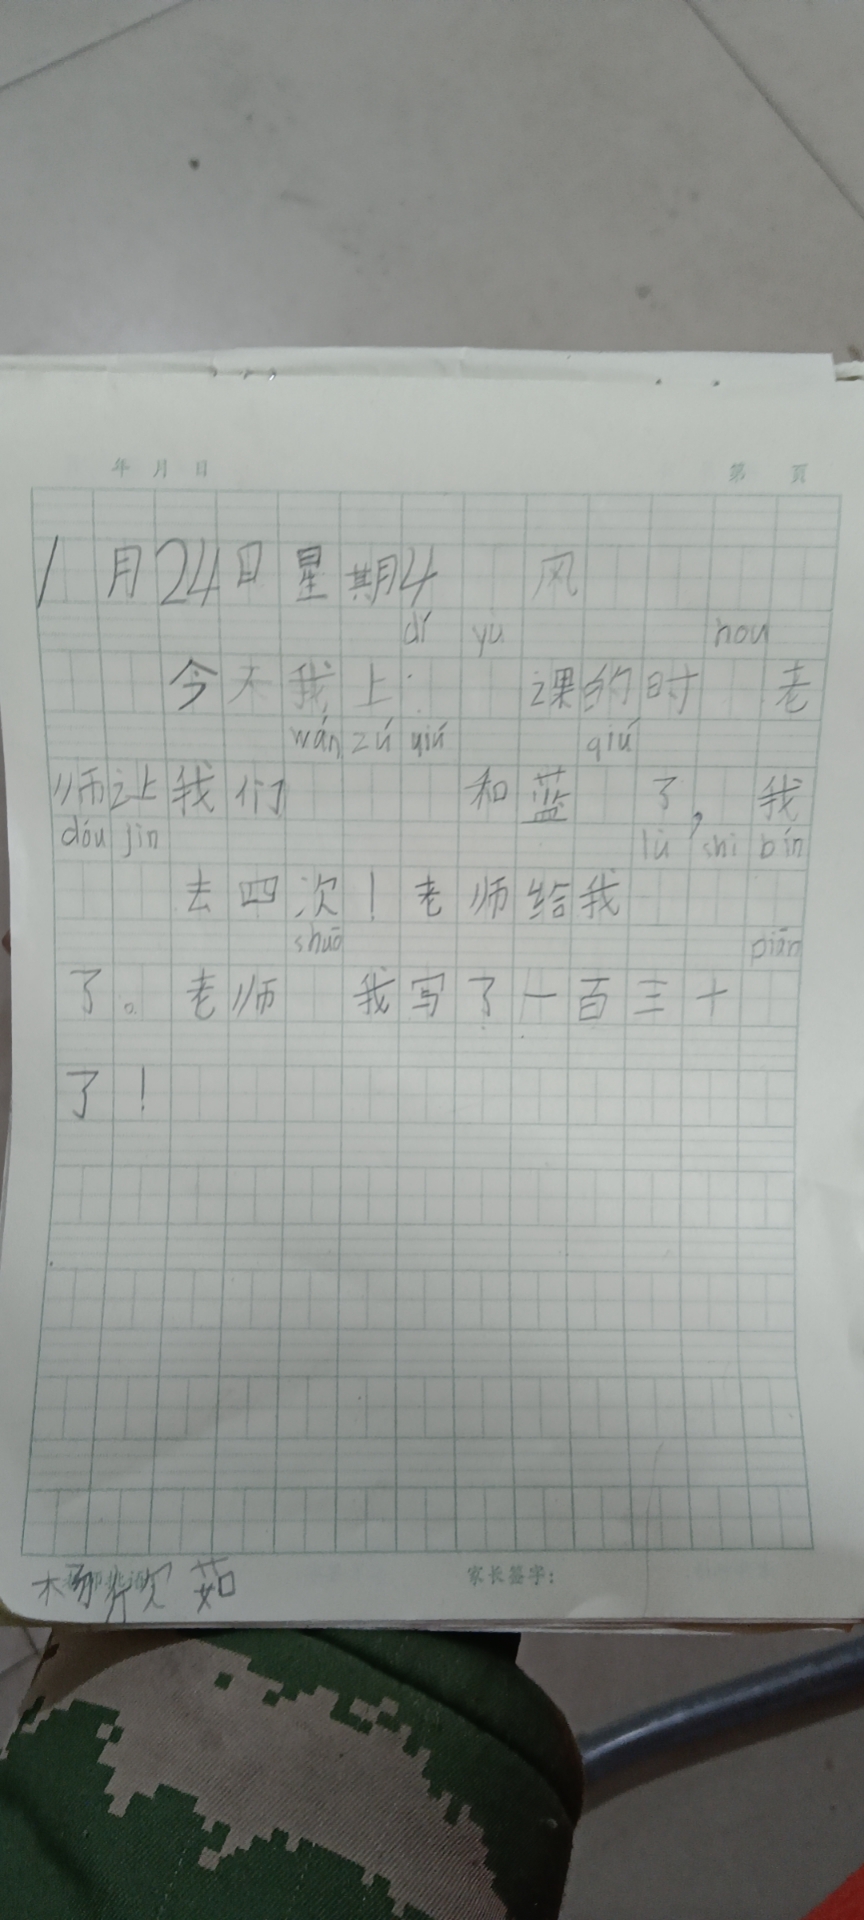 年 月 日 第 頁
1月24日星期4 风
dí yù hou
今天我上 课的时 老
wán zú yiú qiú
师让我们 和蓝 了，我
dóu jìn lù shi bín
去四次！老师给我
shuō piān
了。老师 我写了一百三十
了！
杨欣茹 家长签字：